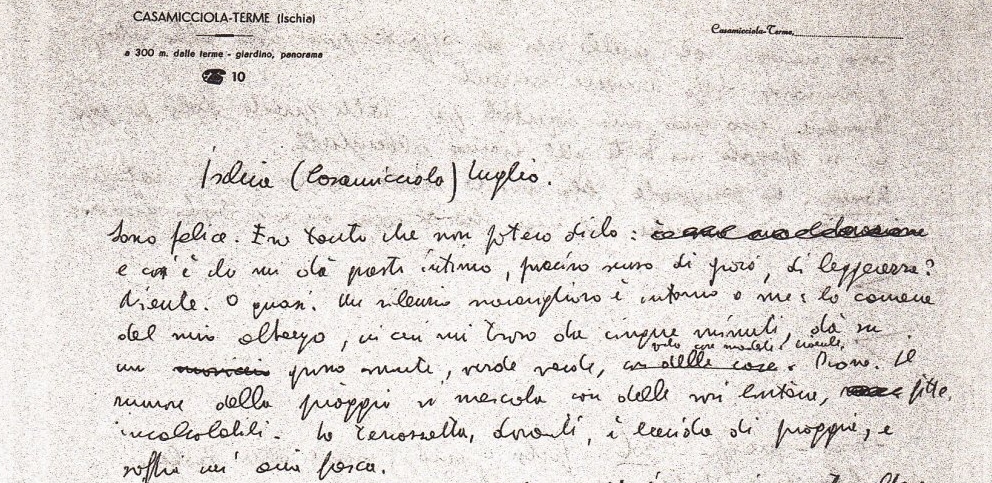 CASAMICCIOLA-TERME (Ischia)
a 300 m. dalle terme - giardino, panorama
☎ 10
Casamicciola-Terme,
Ischia (Casamicciola) luglio.
Sono felice. Era tanto che non potevo dirlo:
e cos'è che mi dà questo intimo, preciso senso di gioia, di leggerezza?
Niente. O quasi. Un silenzio meraviglioso è intorno a me: la camera
del mio albergo, in cui mi trovo da cinque minuti, dà su
un monte, verde verde, delle case. Piove. Il
rumore della pioggia si mescola con delle voci lontane, fitte,
incalcolabili. La terrazzetta, davanti, è lucida di pioggia, e
soffia un'aria fresca.